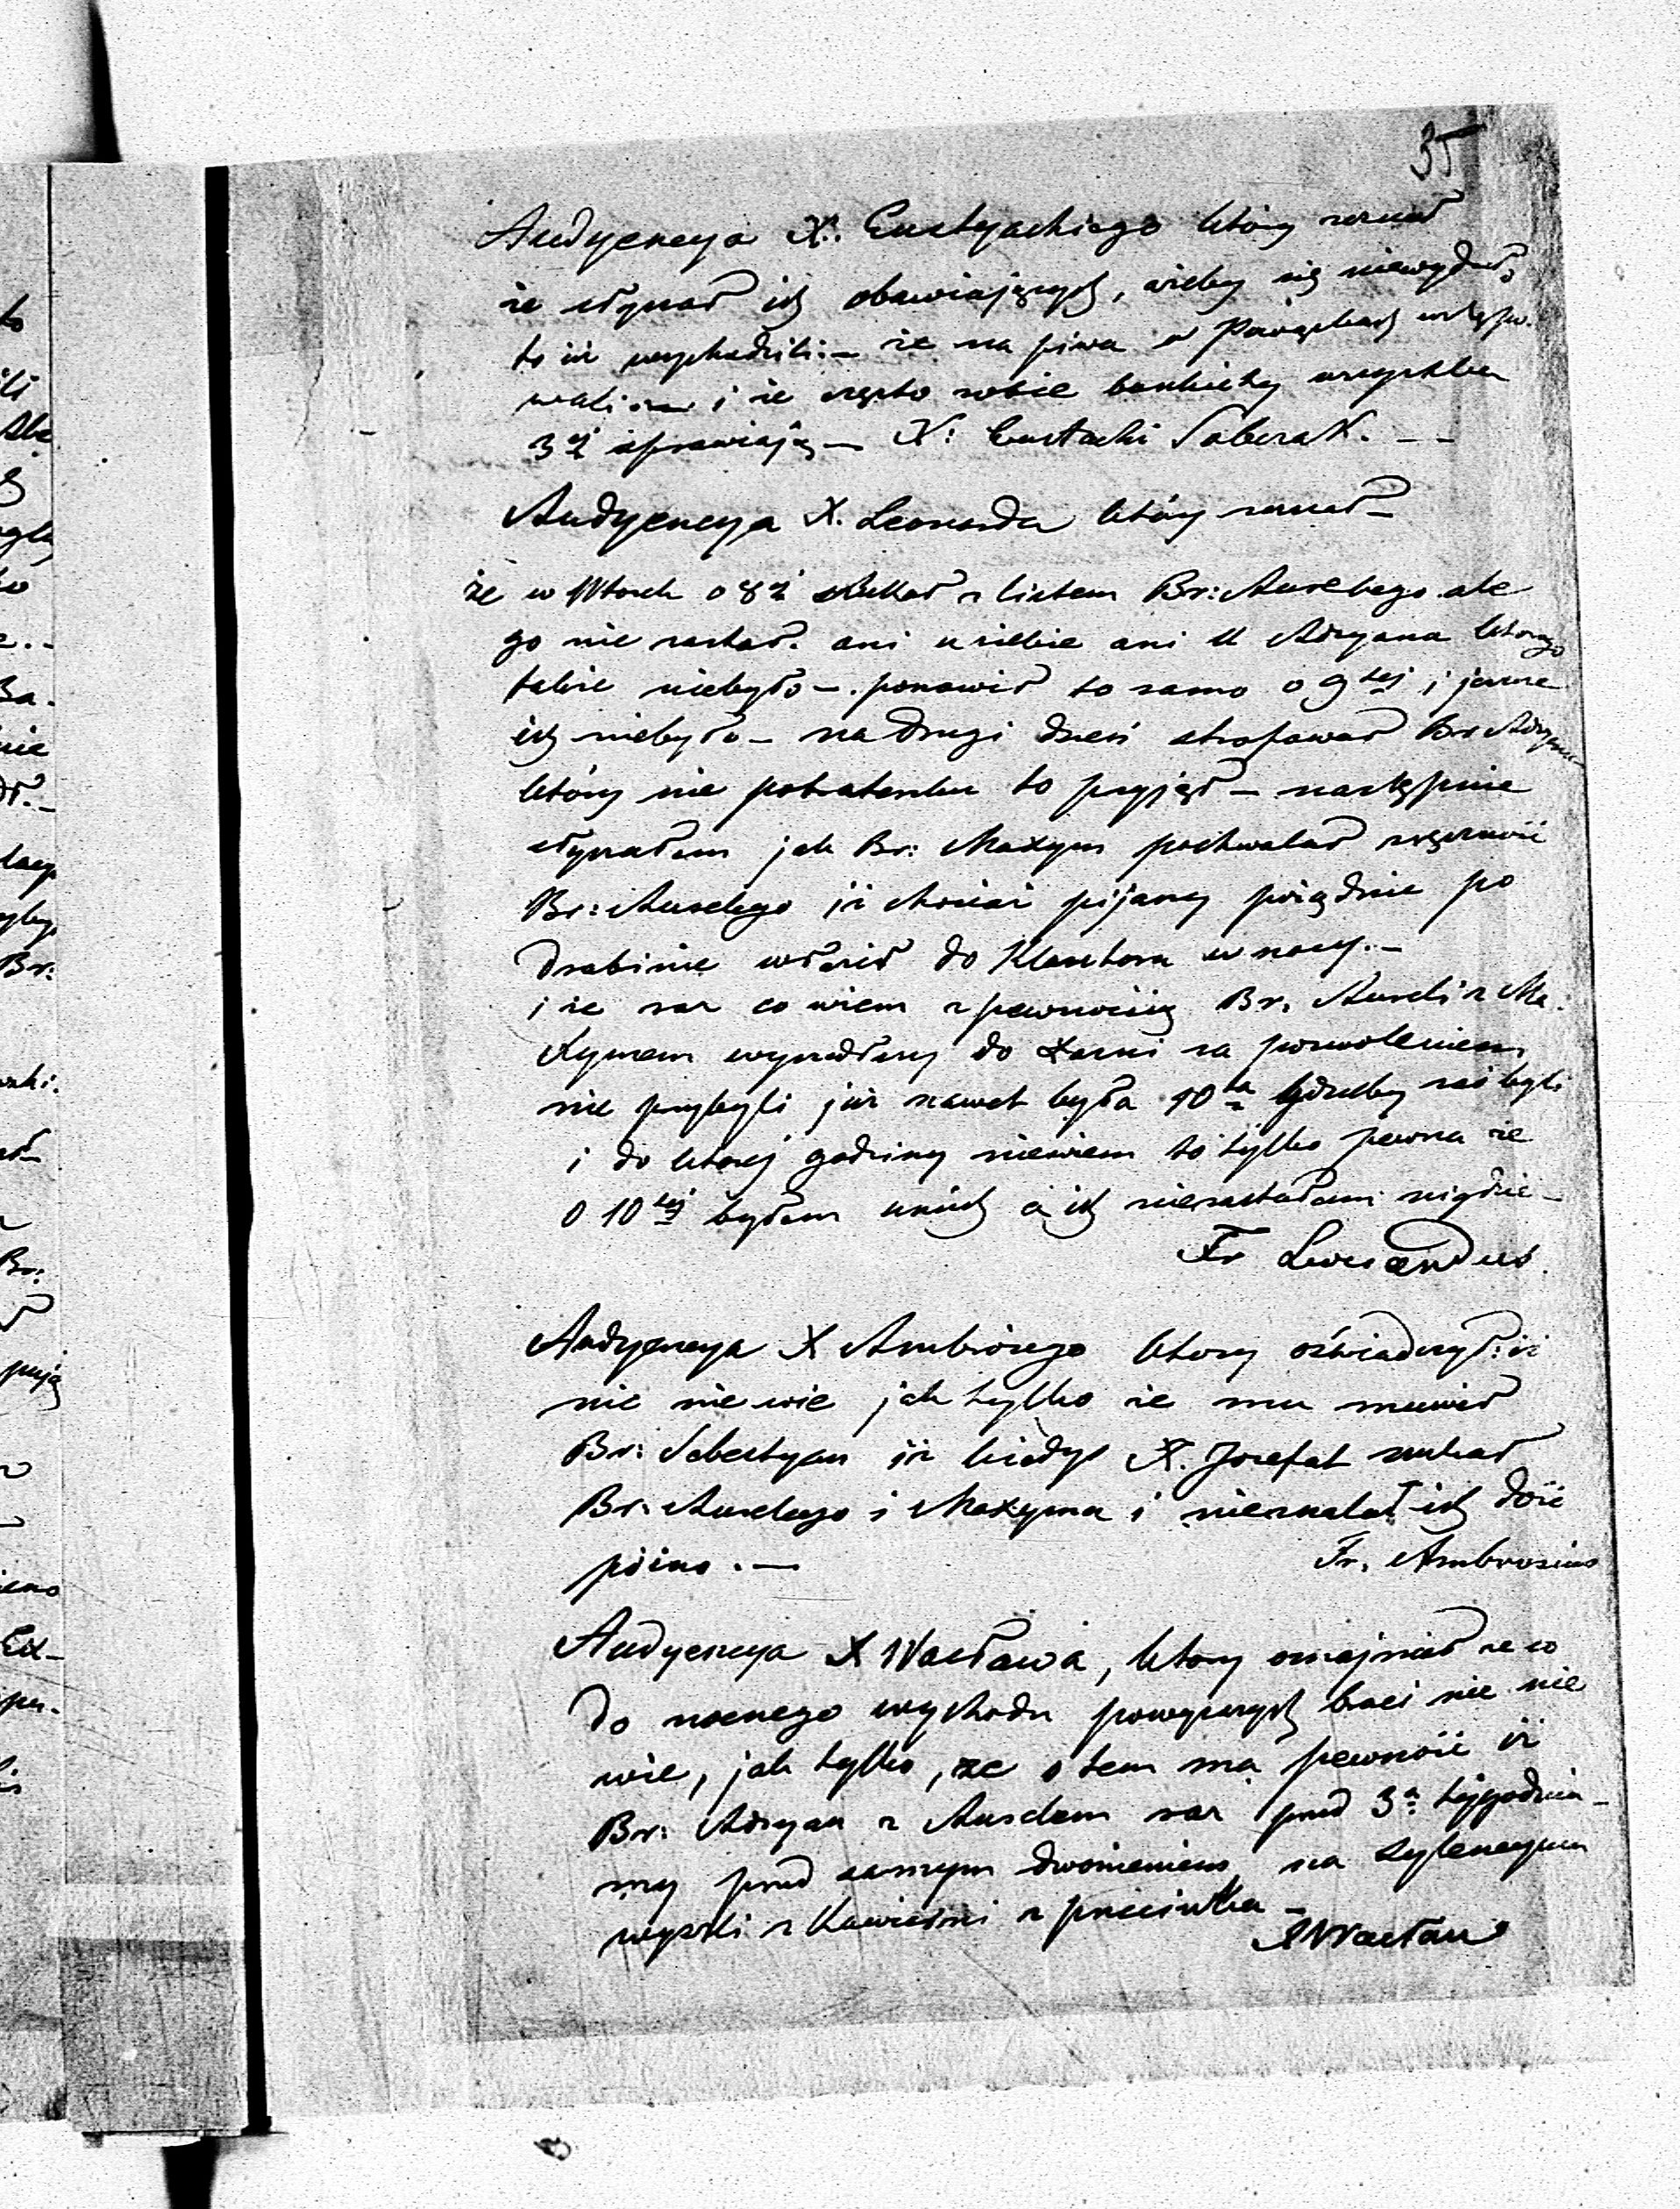 35
Audyencya X. Eustachiego który zeznał
że słyszał ich obawiających, żeby się niewydało
to iż wychodzili. — że na piwa w Powązkach wstępo-
wali i że często sobie bankiety wszystka
3ej sprawiają — X: Eustachi
Audyencya X. Leonarda który zeznał —
że w Wtorek o 8ej szukał z listem Br: Aurelego ale
go nie zastał. ani u siebie ani u Adryana którego
także niebyło —. ponowił to samo o 9tej i jeszcze
ich niebyło — na drugi dzień strofował Br: Adryana
który nie potratersku to przyjął — następnie
słyszałem jak Br: Maxym pochwalał zręczność
Br: Aurelego iż chociaż pijany porządnie po
drabinie właził do Klasztora w nocy. —
i że raz co wiem z pewnością Br. Aureli z Ma-
xymem wyszedłszy do za pozwoleniem
nie przybyli już nawet była 10ta gdzieby zaś byli
i do której godziny niewiem to tylko pewna że
o 10tej byłem u nich a ich niezastałam nigdzie —
Fr Leonardus.
Audyencya X Ambrożego który oświadczył: iż
nic nie wie jak tylko że mu mówił
Br: Sebestyan iż kiedyś X. Jozefat szukał
Br: Aurelego i Maxyma i nieznalazł ich dość
późno. — Fr. Ambrosius
Audyencya X Wacława, który oznajmiał że co
do nocnego wychodu powyższych braci nic nie
wie, jak tylko, że o tem ma pewność iż
Br: Adryan z Aurelem raz przed 3a tygodnia-
my przed samym dwonieniem na sylencyum
wyszli z Kawiarni z przeciwka —
X Wacław